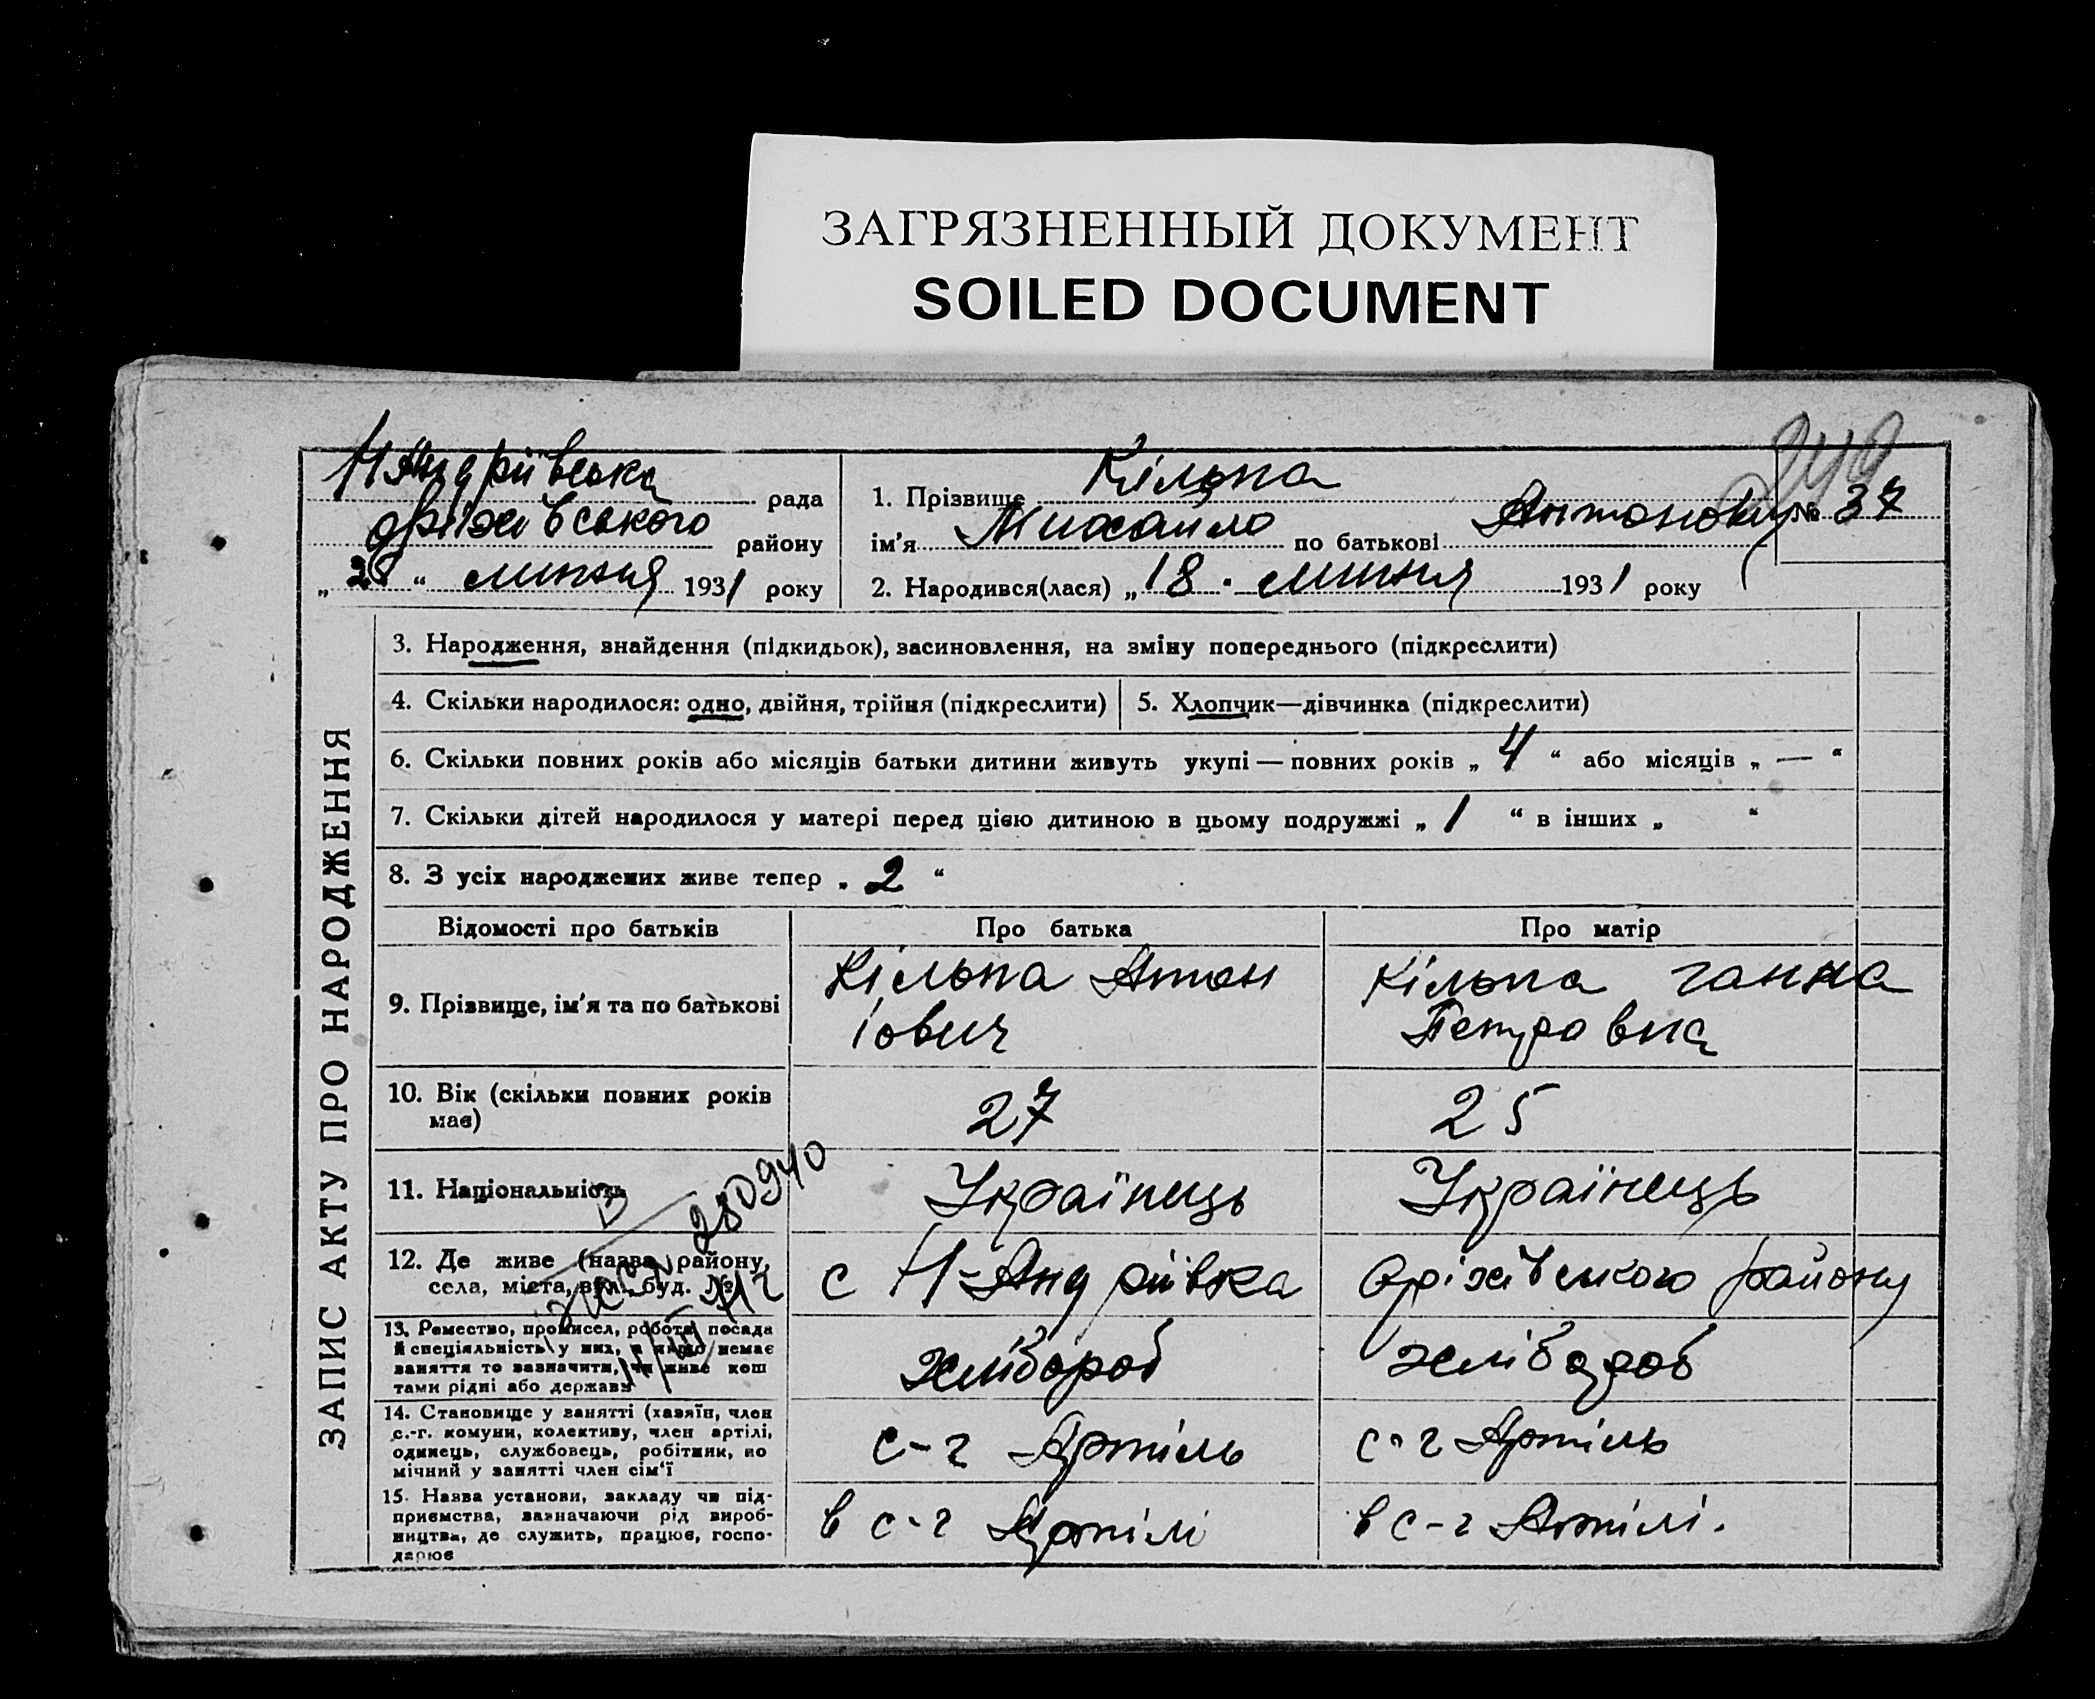 ЗАГРЯЗНЕННЫЙ ДОКУМЕНТ
SOILED DOCUMENT
Н Андріївська рада
Оріхівського району
„ 28 “ липня 1931 року
1. Прізвище Кільпа
ім'я Михайло по батькові Антонович № 37
2. Народився(лася) „ 18 “ липня 1931 року
ЗАПИС АКТУ ПРО НАРОДЖЕННЯ
3. Народження, знайдення (підкидьок), засиновлення, на зміну попереднього (підкреслити)
4. Скільки народилося: одно, двійня, трійня (підкреслити)
5. Хлопчик—дівчинка (підкреслити)
6. Скільки повних років або місяців батьки дитини живуть укупі — повних років „ 4 “ або місяців „ — “
7. Скільки дітей народилося у матері перед цією дитиною в цьому подружжі „ 1 “ в інших „ “
8. З усіх народжених живе тепер „ 2 “
Відомості про батьків
Про батька
Про матір
9. Прізвище, ім'я та по батькові
Кільпа Антон
Іович
Кільпа Ганна
Петровна
10. Вік (скільки повних років
має)
27
25
11. Національність
Українець
Українець
280940
12. Де живе (назва району,
села, міста, вул. буд. №)
с Н-Андріївка
Оріхівського району
13. Ремество, промисел, робота, посада
й спеціяльність у них, а якщо немає
заняття то зазначити, чи живе кош
тами рідні або держави
хлібороб
хлібороб
14. Становище у занятті (хазяїн, член
с.-г. комуни, колективу, член артілі,
одинець, службовець, робітник, по
мічний у занятті член сім'ї
с-г Артіль
с-г Артіль
15. Назва установи, закладу чи під-
приємства, зазначаючи рід вироб-
ництва, де служить, працює, госпо-
дарює
в с-г Артілі
в с-г Артілі.